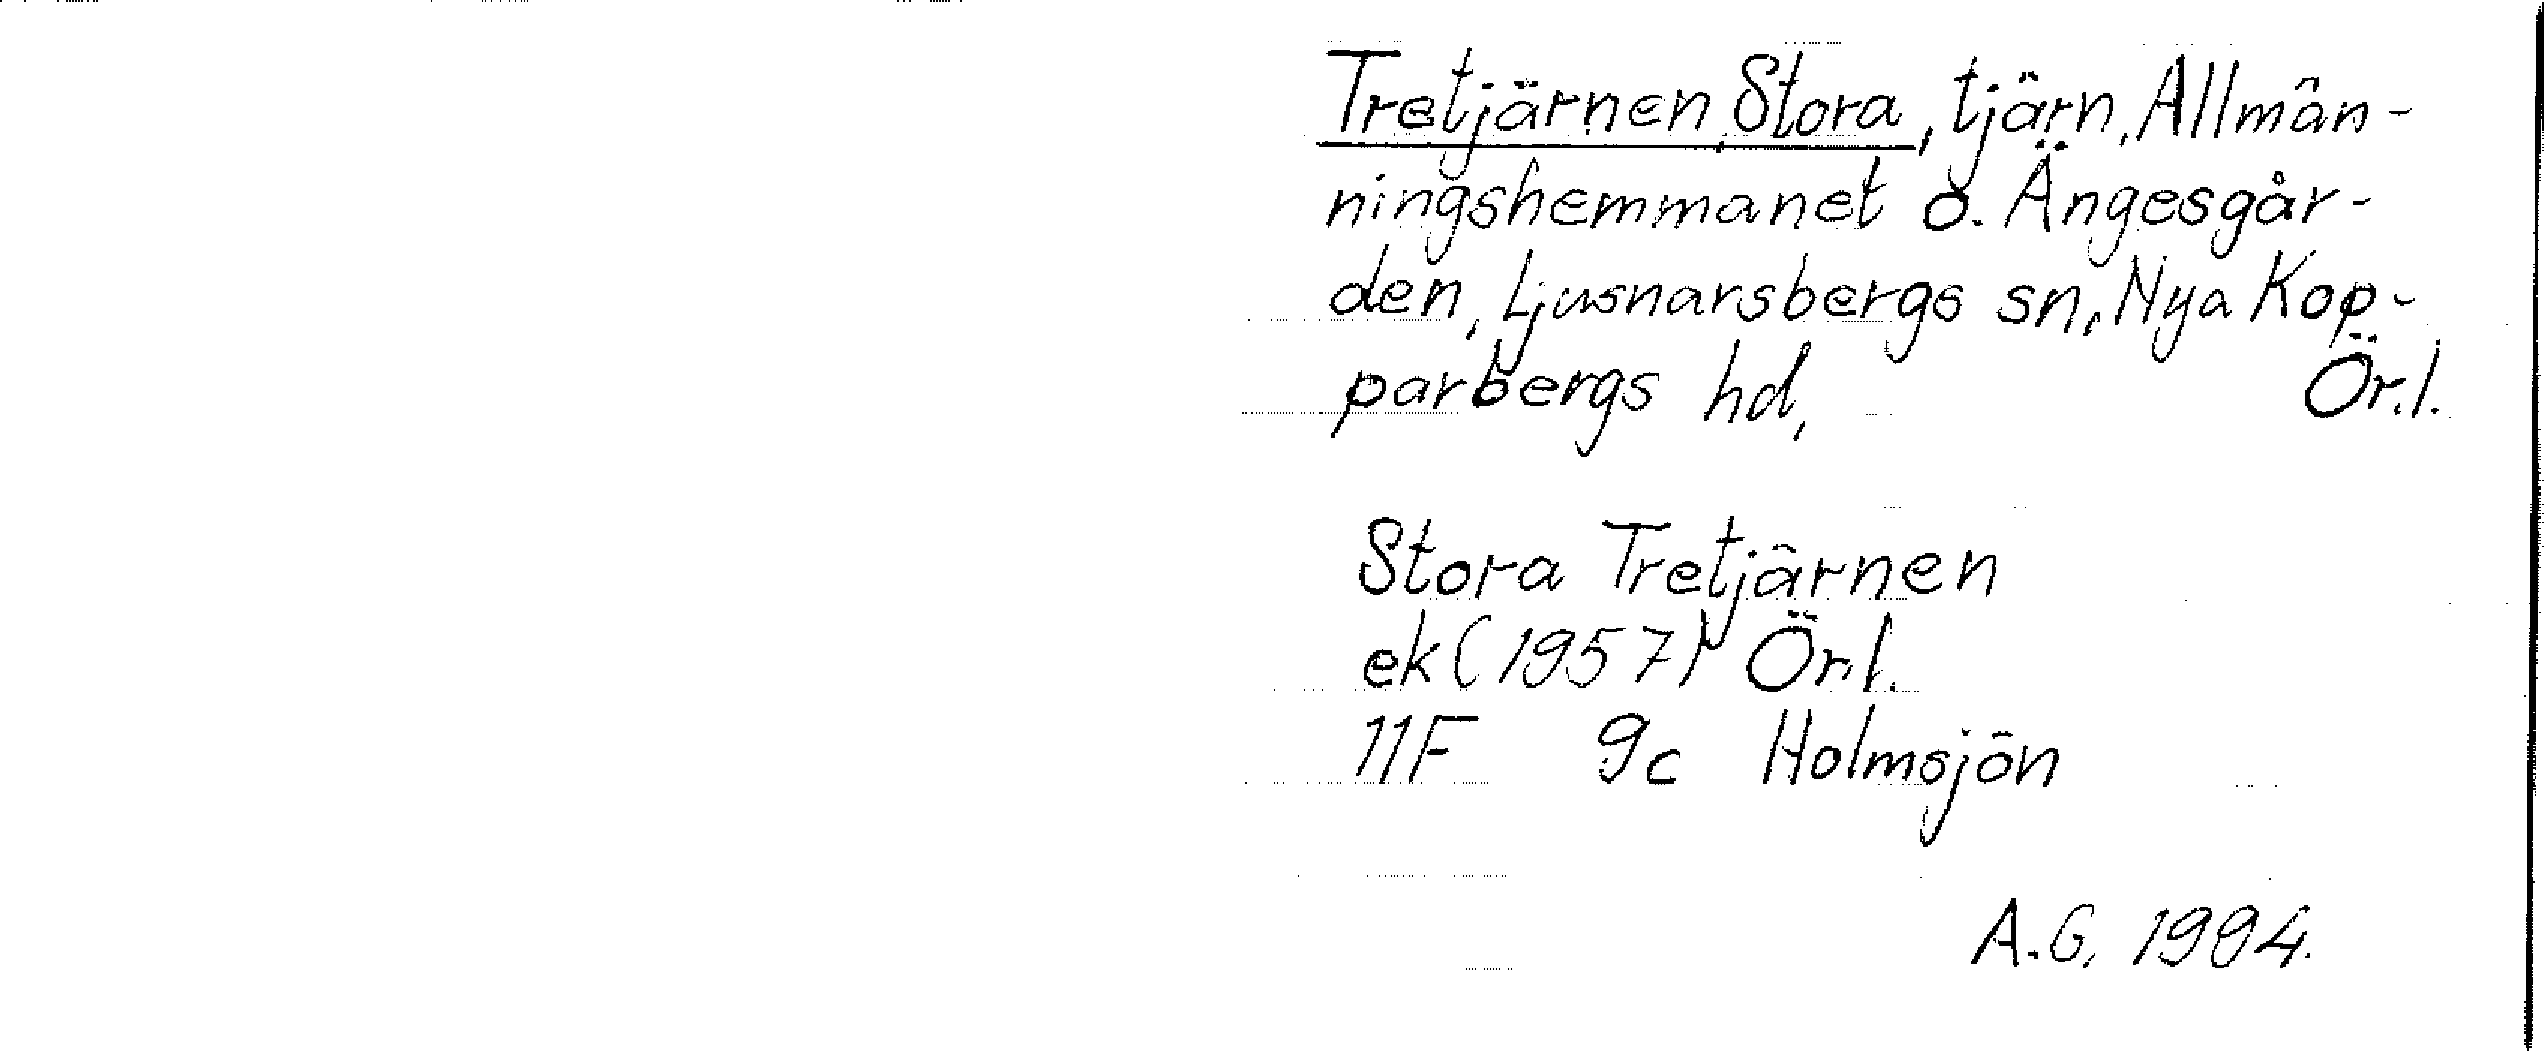 Tretjärnen, Stora, tjärn, Allmän-
ningshemmanet o. Ängesgår-
den, Ljusnarsbergs sn, Nya Kop-
parbergs hd, Ör.l.
Stora Tretjärnen
ek (1957) Ör.l.
11F 9c Holmsjön
A.G. 1994.